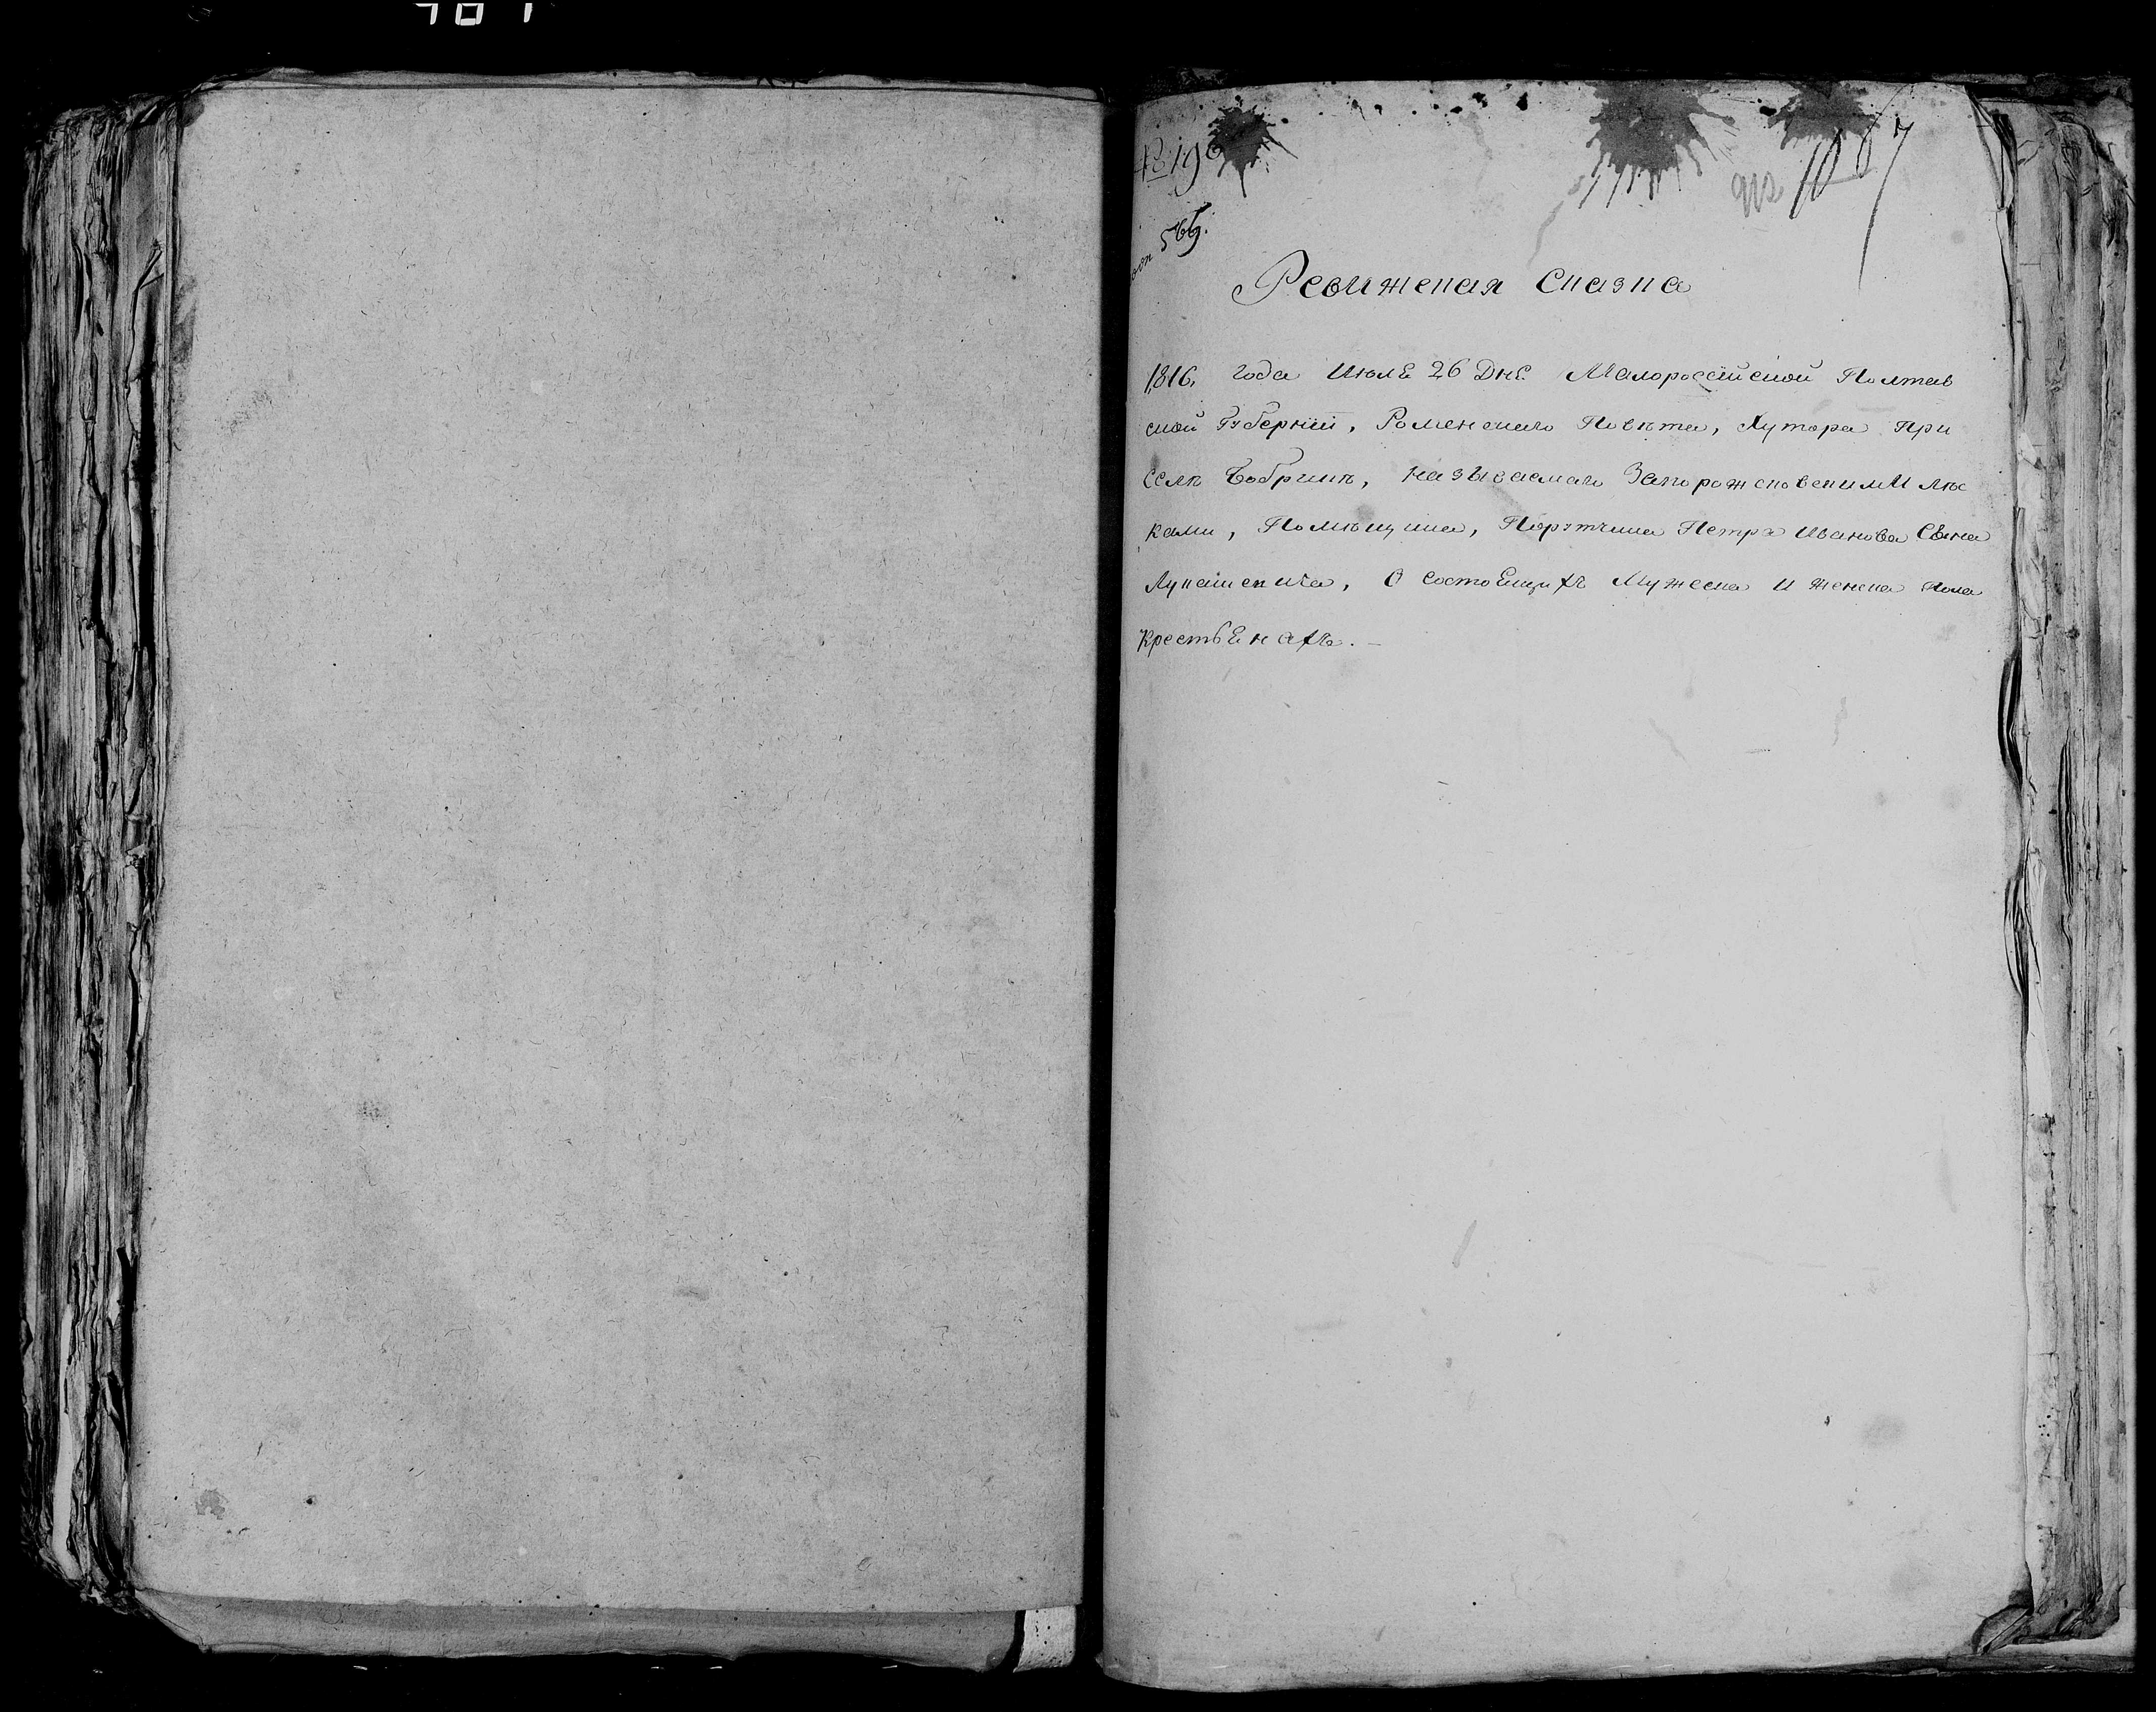 № 19
569.
912
Ревижская Сказка
1816, года Июля 26 Дня Малороссійской Полтав
ской Губерніи, Роменскаго Повѣта, Хутора При
селѣ Бобрикѣ, называемаго Запорожсковскими Лѣс
ками, Помѣщика, Порутчика Петра Иванова Сына
Лукашевича, О состоящихъ Мужеска и женска пола
крестьянахъ. —